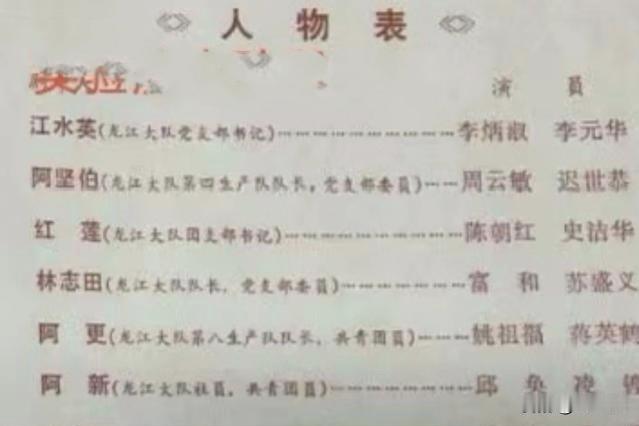 人物表
演员
江水英(龙江大队党支部书记)………………李炳淑 李元华
阿坚伯(龙江大队第四生产队队长,党支部委员)……周云敏 迟世恭
红莲(龙江大队团支部书记)………………陈朝红 史洁华
林志田(龙江大队队长,党支部委员)…………富和 苏盛义
阿更(龙江大队第八生产队队长,共青团员)………姚祖福 蒋英鹤
阿新(龙江大队社员,共青团员)……………邱 凌